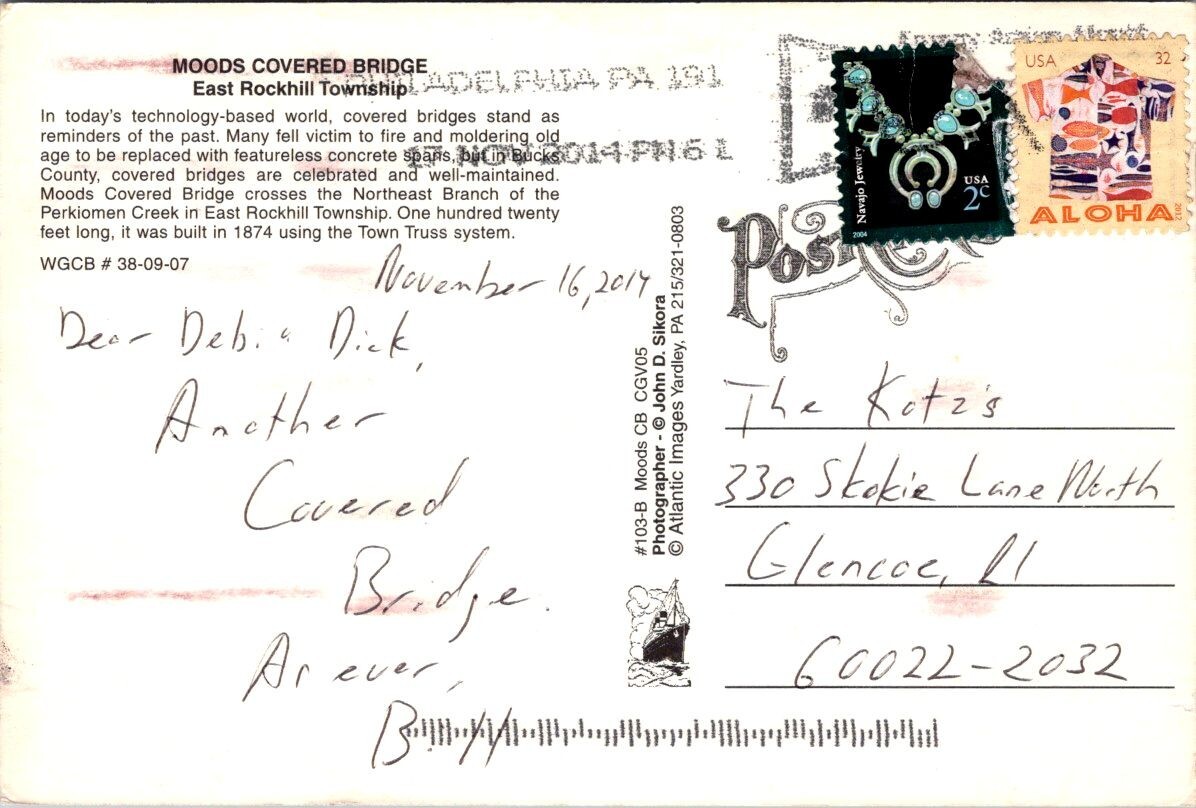 MOODS COVERED BRIDGE
East Rockhill Township
In today's technology-based world, covered bridges stand as
reminders of the past. Many fell victim to fire and moldering old
age to be replaced with featureless concrete spans, but in Bucks
County, covered bridges are celebrated and well-maintained.
Moods Covered Bridge crosses the Northeast Branch of the
Perkiomen Creek in East Rockhill Township. One hundred twenty
feet long, it was built in 1874 using the Town Truss system.
WGCB # 38-09-07
PHILADELPHIA PA 191
17 NOV 2014 PM 6 L
November 16, 2014
Dear Deb & Dick,
Another
Covered
Bridge.
As ever,
Bill
#103-B Moods CB CGV05
Photographer - © John D. Sikora
© Atlantic Images Yardley, PA 215/321-0803
Navajo Jewelry
USA
2c
2004
USA 32
ALOHA
2012
The Kotz's
330 Skokie Lane North
Glencoe, Il
60022-2032